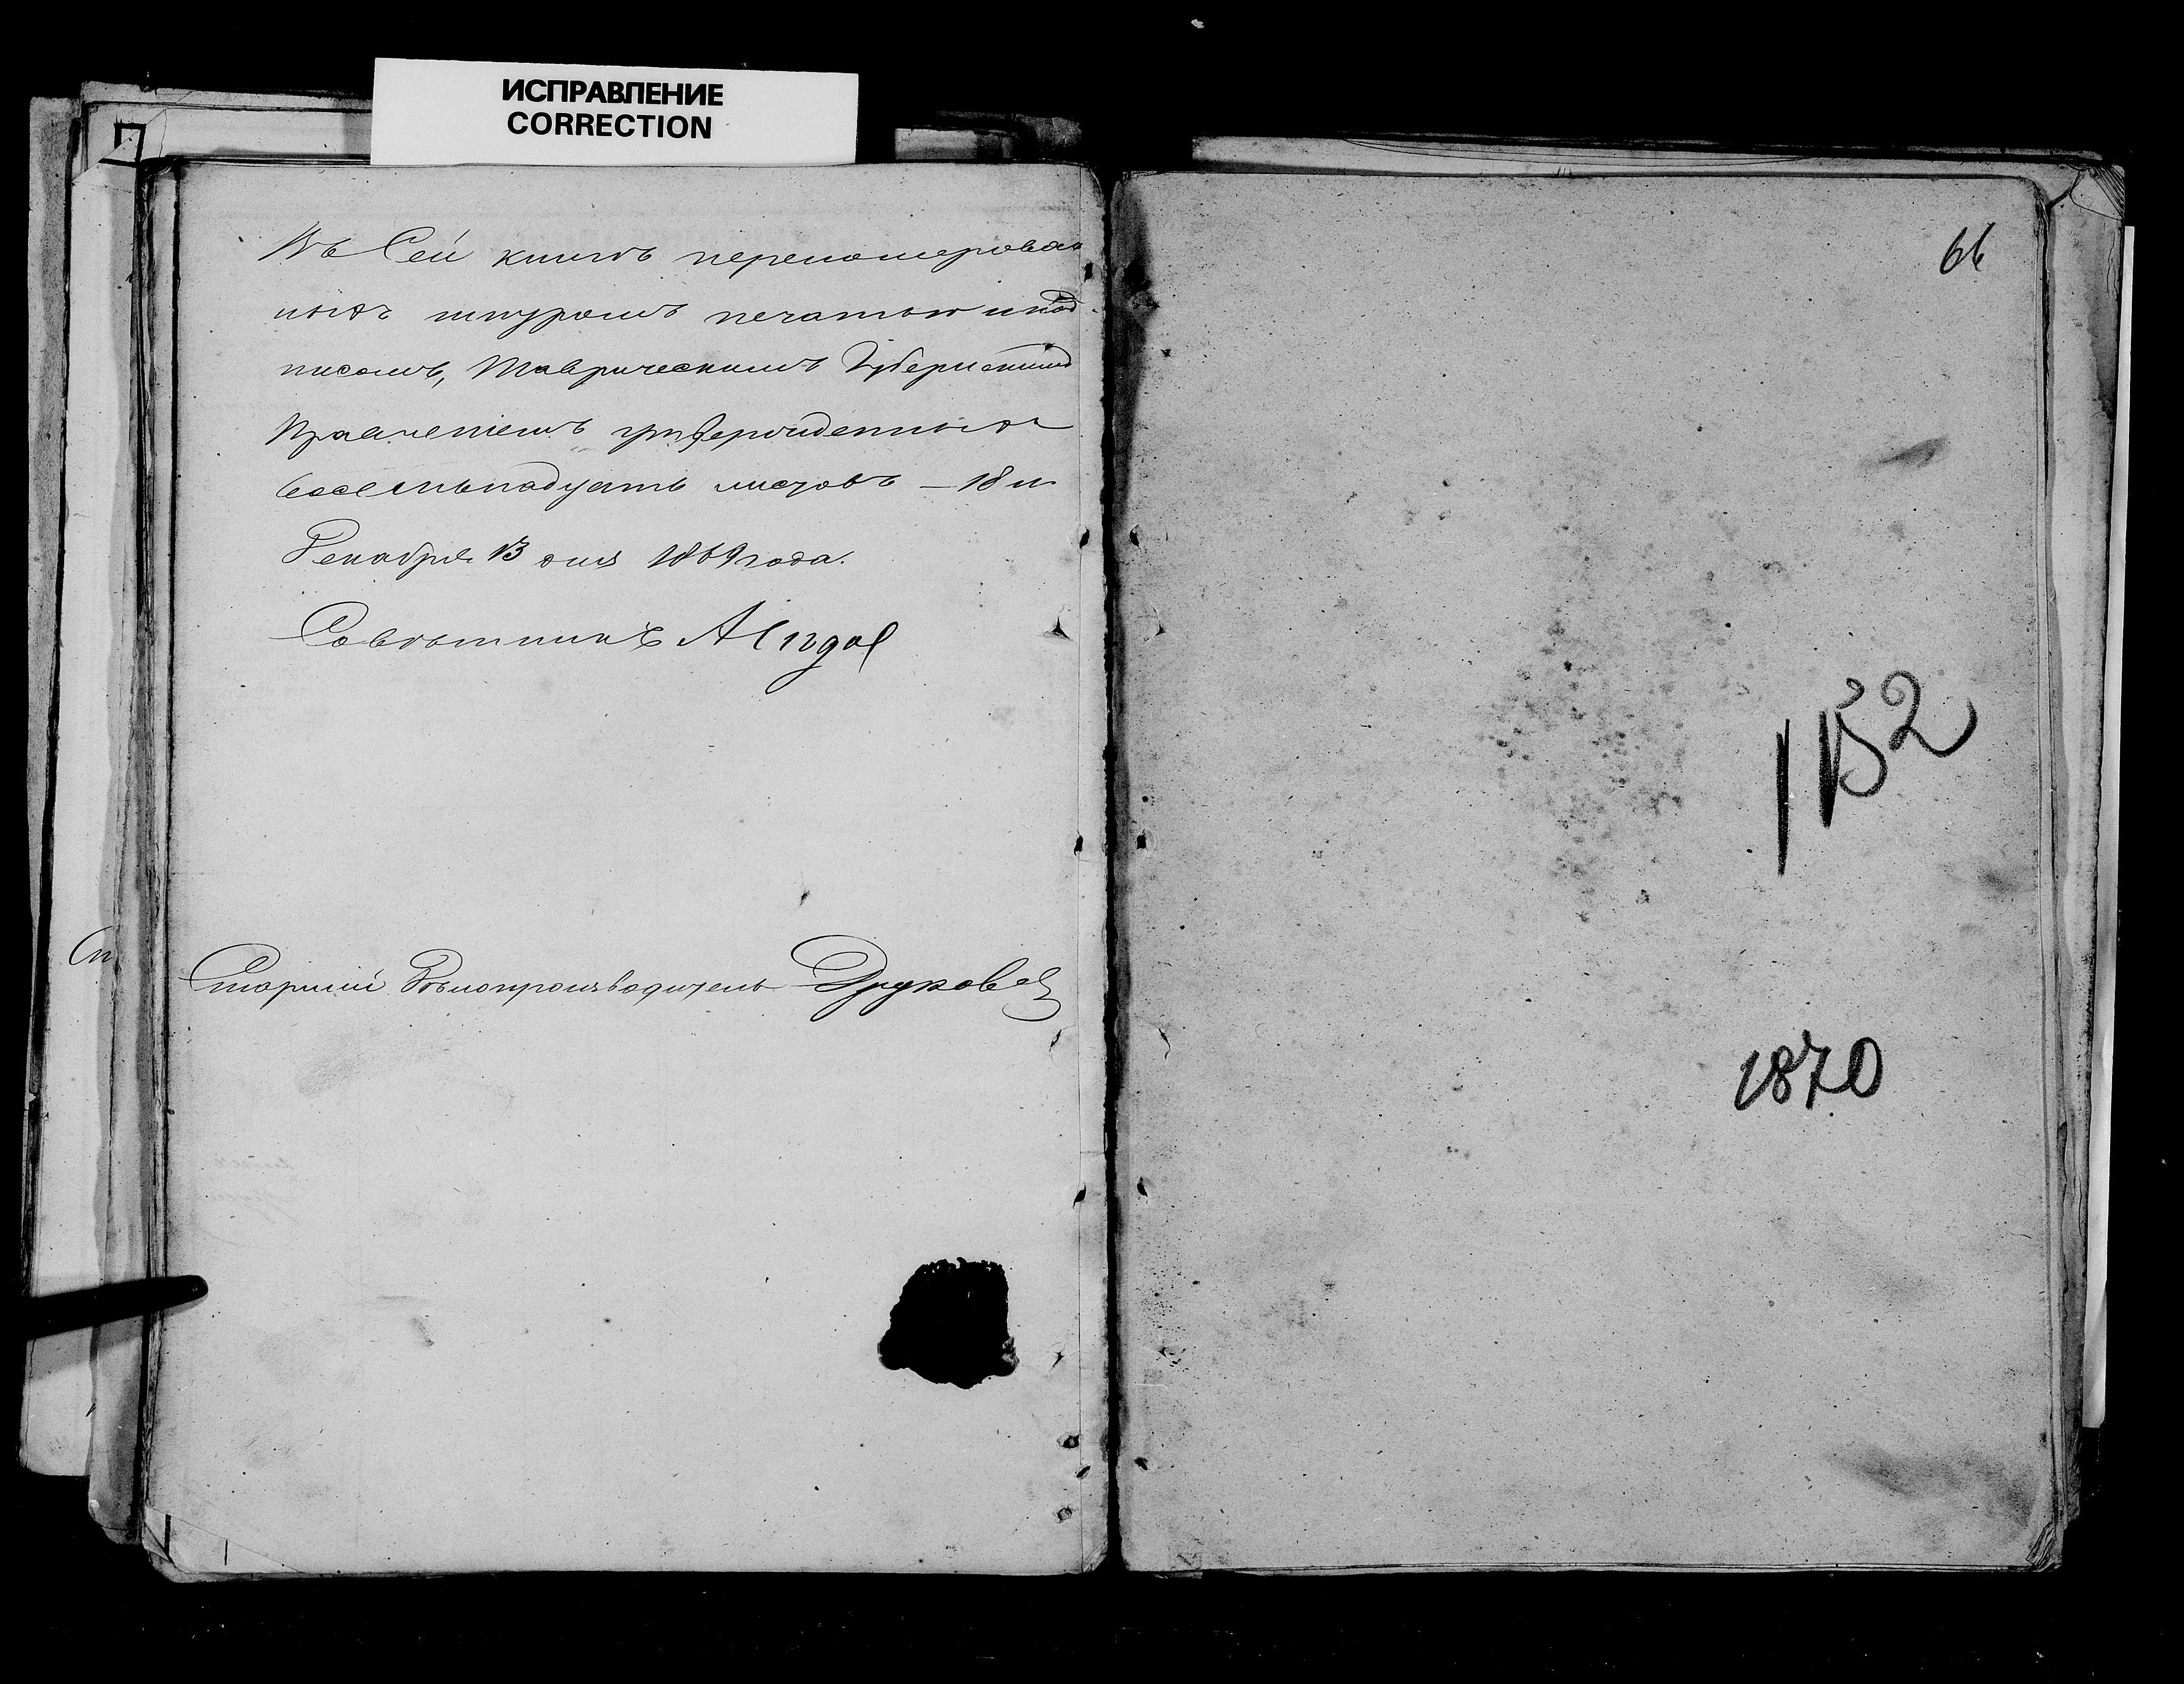 ИСПРАВЛЕНИЕ
CORRECTION
Въ Сей книгѣ перенумерован
ныхъ шнуромъ печатью и под
писомъ, Таврическимъ Губернскимъ
Правленiемъ утвержденныхъ
восемьнадцать листовъ – 18 л
Декабря 13 дня 1869 года.
Совѣтникъ
Старшiй Дѣлопроизводитель
66
1870